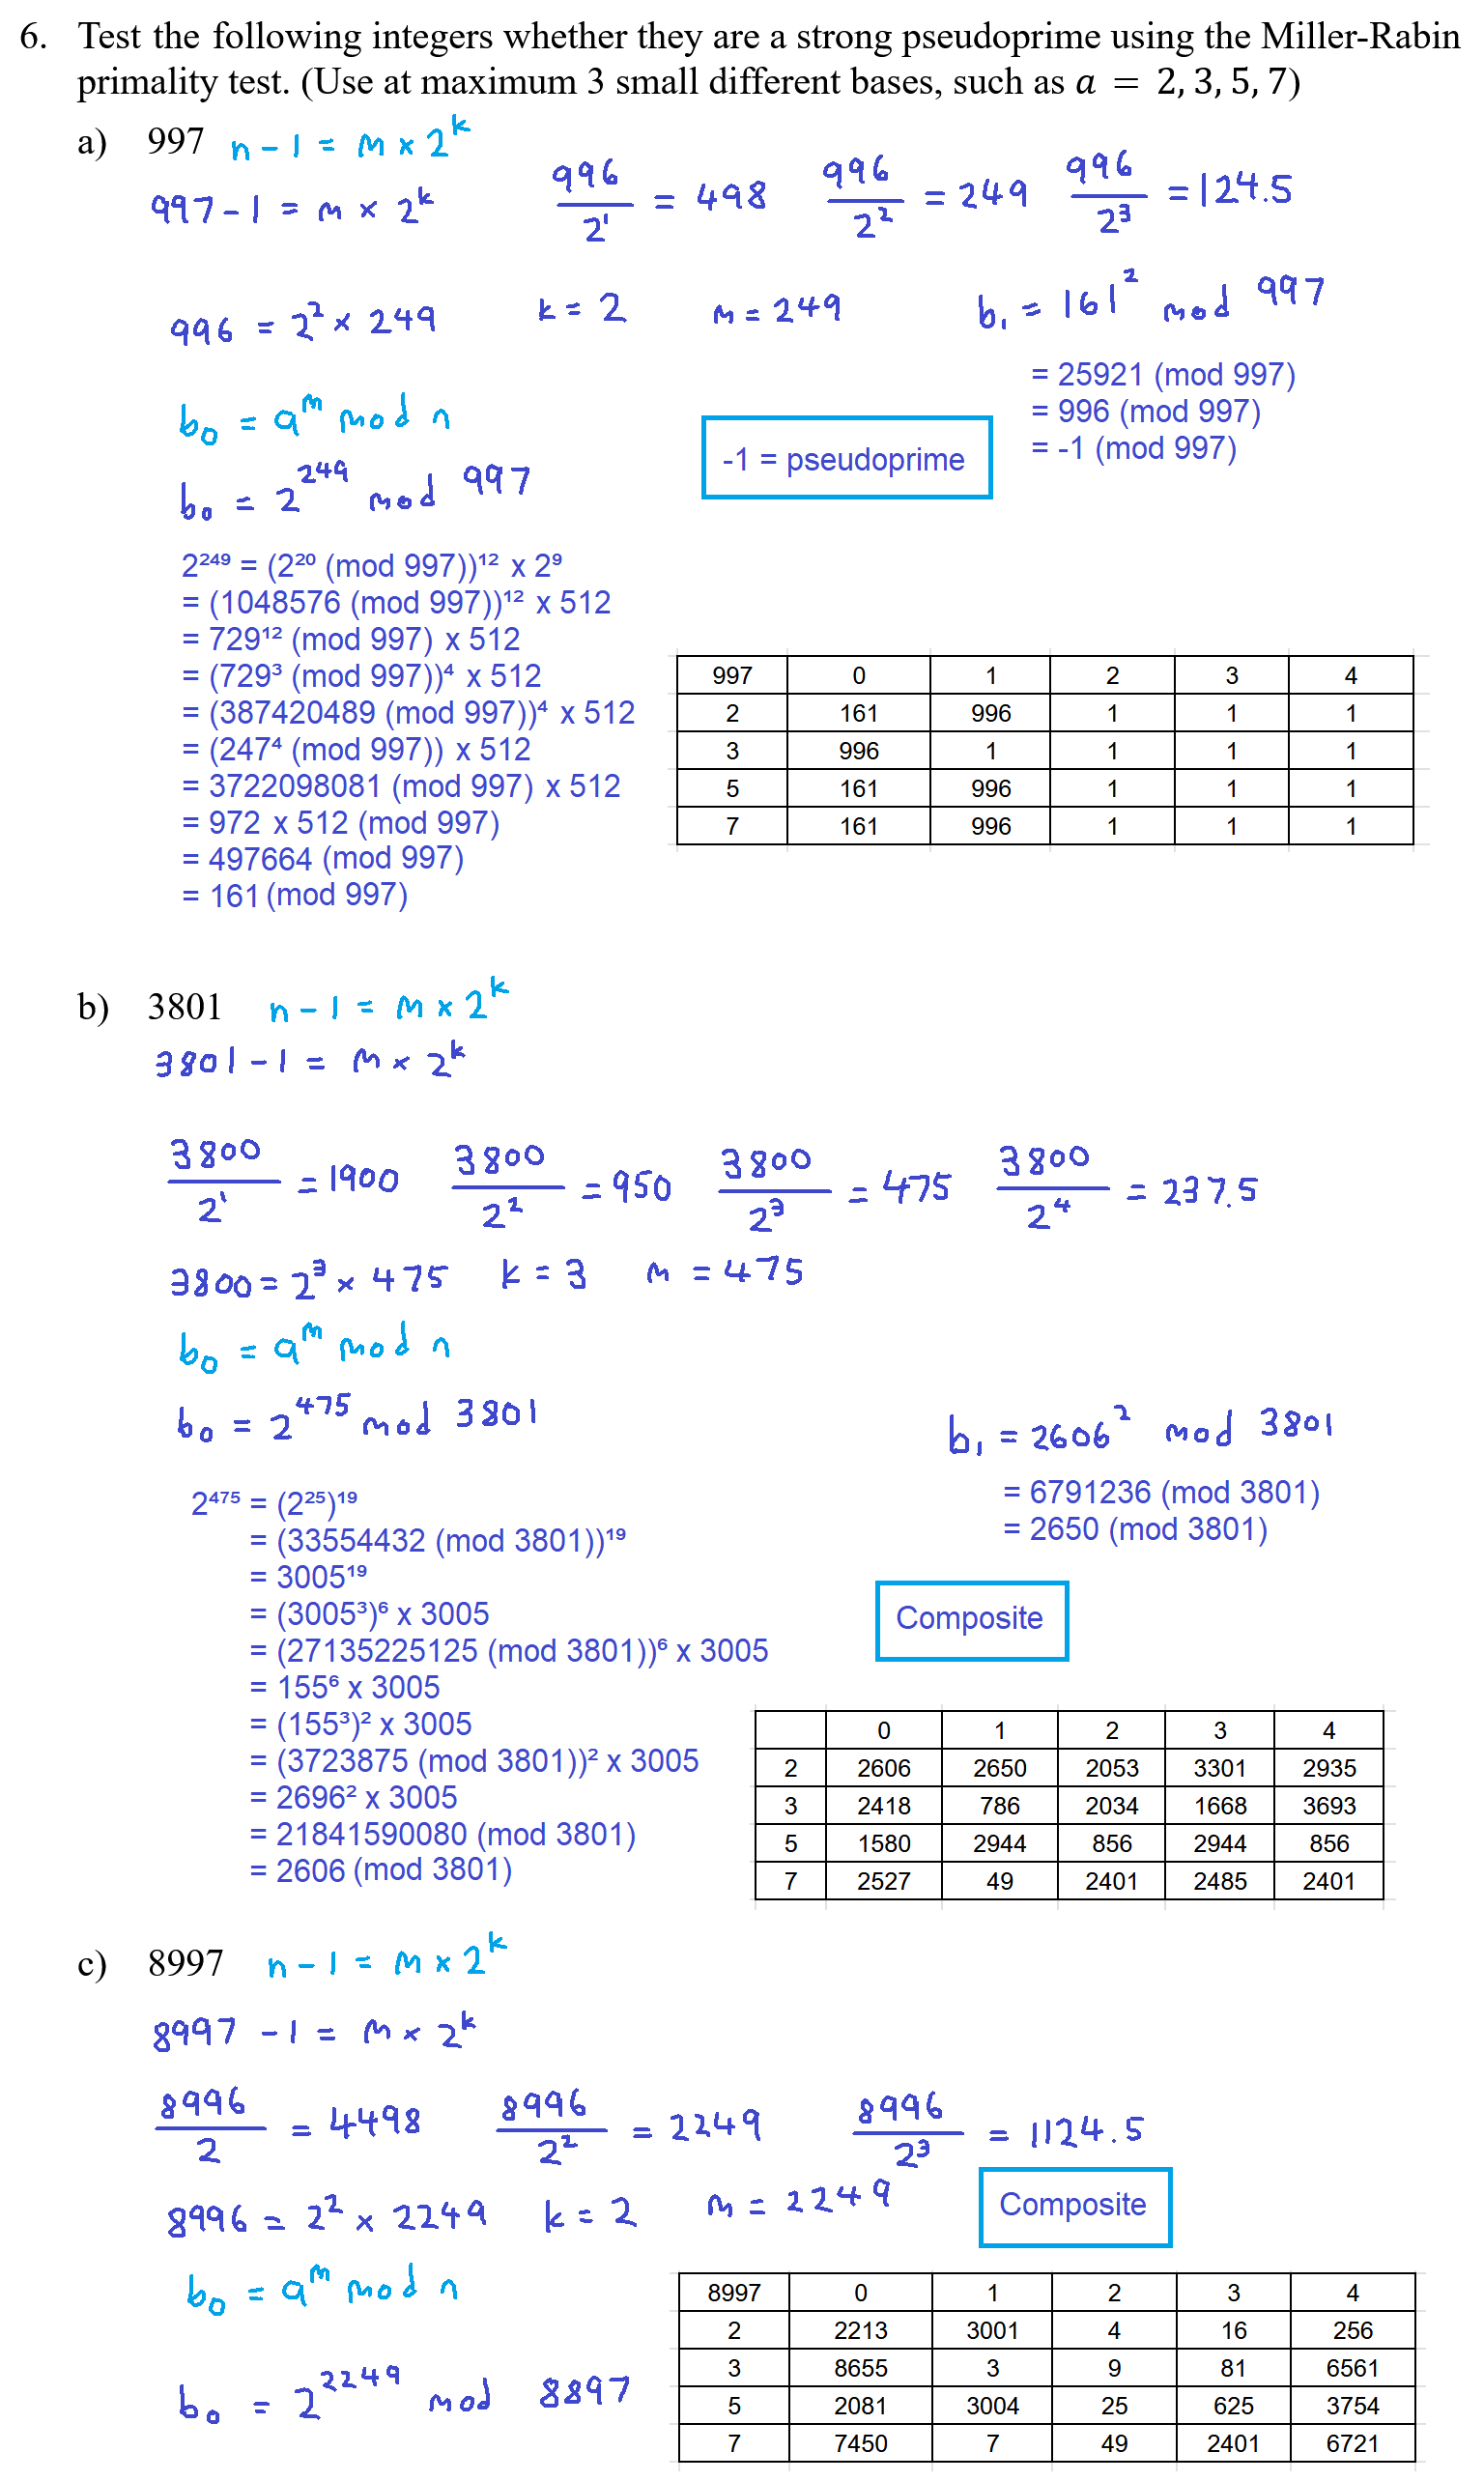 6. Test the following integers whether they are a strong pseudoprime using the Miller-Rabin
primality test. (Use at maximum 3 small different bases, such as a = 2, 3, 5, 7)
a) 997 n - 1 = m × 2ᵏ
997 - 1 = m × 2ᵏ
996/2¹ = 498 996/2² = 249 996/2³ = 124.5
996 = 2² × 249 k = 2 m = 249
b₁ = 161² mod 997
= 25921 (mod 997)
= 996 (mod 997)
= -1 (mod 997)
-1 = pseudoprime
b₀ = aᵐ mod n
b₀ = 2²⁴⁹ mod 997
2²⁴⁹ = (2²⁰ (mod 997))¹² x 2⁹
= (1048576 (mod 997))¹² x 512
= 729¹² (mod 997) x 512
= (729³ (mod 997))⁴ x 512
= (387420489 (mod 997))⁴ x 512
= (247⁴ (mod 997)) x 512
= 3722098081 (mod 997) x 512
= 972 x 512 (mod 997)
= 497664 (mod 997)
= 161 (mod 997)
997 0 1 2 3 4
2 161 996 1 1 1
3 996 1 1 1 1
5 161 996 1 1 1
7 161 996 1 1 1
b) 3801 n - 1 = m × 2ᵏ
3801 - 1 = m × 2ᵏ
3800/2¹ = 1900 3800/2² = 950 3800/2³ = 475 3800/2⁴ = 237.5
3800 = 2³ × 475 k = 3 m = 475
b₀ = aᵐ mod n
b₀ = 2⁴⁷⁵ mod 3801
2⁴⁷⁵ = (2²⁵)¹⁹
= (33554432 (mod 3801))¹⁹
= 3005¹⁹
= (3005³)⁶ x 3005
= (27135225125 (mod 3801))⁶ x 3005
= 155⁶ x 3005
= (155³)² x 3005
= (3723875 (mod 3801))² x 3005
= 2696² x 3005
= 21841590080 (mod 3801)
= 2606 (mod 3801)
b₁ = 2606² mod 3801
= 6791236 (mod 3801)
= 2650 (mod 3801)
Composite
0 1 2 3 4
2 2606 2650 2053 3301 2935
3 2418 786 2034 1668 3693
5 1580 2944 856 2944 856
7 2527 49 2401 2485 2401
c) 8997 n - 1 = m × 2ᵏ
8997 - 1 = m × 2ᵏ
8996/2 = 4498 8996/2² = 2249 8996/2³ = 1124.5
8996 = 2² × 2249 k = 2 m = 2249
Composite
b₀ = aᵐ mod n
b₀ = 2²²⁴⁹ mod 8897
8997 0 1 2 3 4
2 2213 3001 4 16 256
3 8655 3 9 81 6561
5 2081 3004 25 625 3754
7 7450 7 49 2401 6721